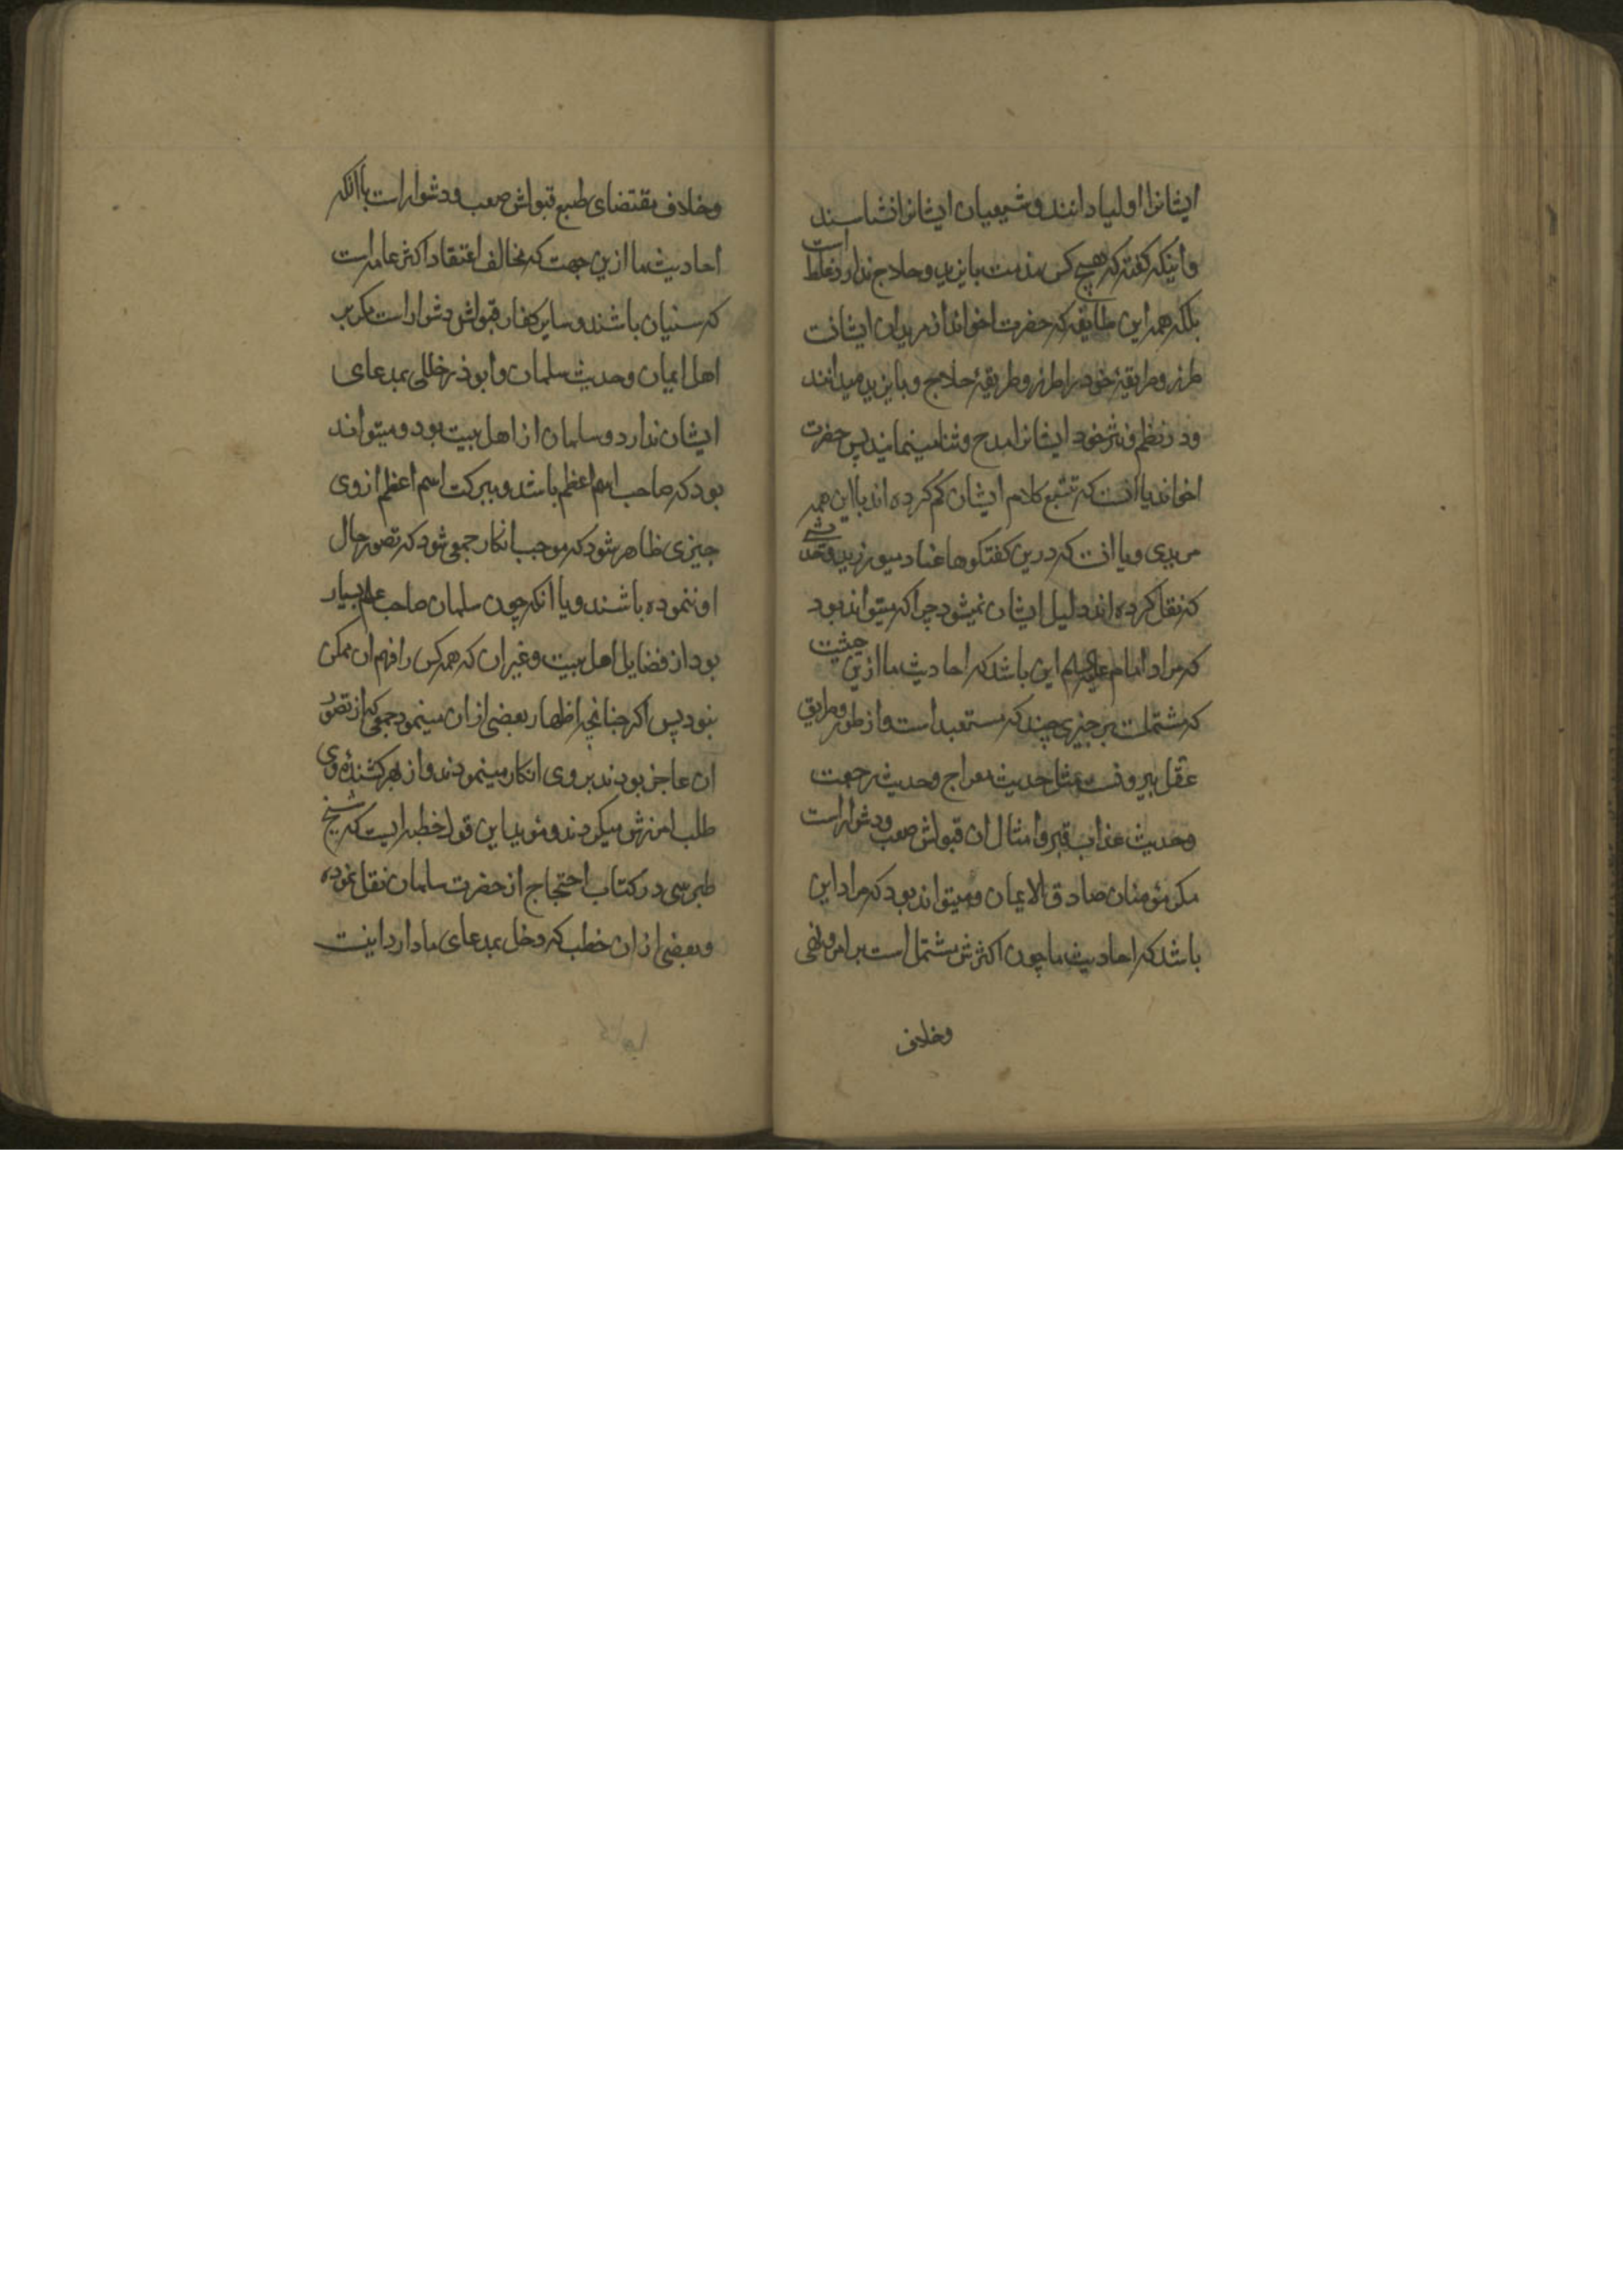 ایشانرا اولیا دانند و شیعیان ایشانرا نشناسند
و اینکه گفته که هیچ کس مذهب بایزید و حلاج ندارد غلط است
بلکه همه این طایفه که حضرت اخواند از مریدان ایشانست
طرز و طریقهٔ خود را طرز و طریقهٔ حلاج و بایزید میدانند
و در نظم و نثر خود ایشانرا مدح و ثنا مینمایند پس حضرت
اخواند یا انست که تتبع کلام ایشان کم کرده اند با این همه
مریدی و یا انست که درین کفتکوها عناد میورزید و حدیثی
که نقل کرده اند دلیل ایشان نمیشود چرا که میتواند بود
که مراد امام علیه السلم این باشد که احادیث ما ازین حیثیت
که مشتملست بر چیزی چند که مستبعد است و از طور و طریق
عقل بیرونست مثل حدیث معراج و حدیث رجعت
و حدیث عذاب قبر و امثال ان قبولش صعب و دشوار است
مکر مؤمنان صادق الایمان و میتواند بود که مراد این
باشد که احادیث ما چون اکثرش مشتمل است بر امر و نهی
وخلاف
وخلاف مقتضای طبع قبولش صعب و دشوار است با انکه
احادیث ما ازین جهت که مخالف اعتقاد اکثر عامه است
که سنیان باشند و سایر کفار قبولش دشوار است مکر بر
اهل ایمان و حدیث سلمان و ابوذر خللی بمدعای
ایشان ندارد و سلمان از اهل بیت بود و میتواند
بود که صاحب اسم اعظم باشد و ببرکت اسم اعظم از وی
چیزی ظاهر شود که موجب انکار جمعی شود که تصور حال
او ننموده باشند و یا انکه چون سلمان صاحب علم بسیار
بود از فضایل اهل بیت و غیر ان که همه کس را فهم ان ممکن
نبود پس اکر چنانچه اظهار بعضی از ان مینمود جمعی که از تصور
ان عاجز بودند بر وی انکار مینمودند و از بهر کشندهٔ وی
طلب امرزش میکردند و مؤید این قول خطبه ایست که شیخ
طبرسی در کتاب احتجاج از حضرت سلمان نقل نموده
و بعضی از ان خطب که دخل بمدعای ما دارد اینست